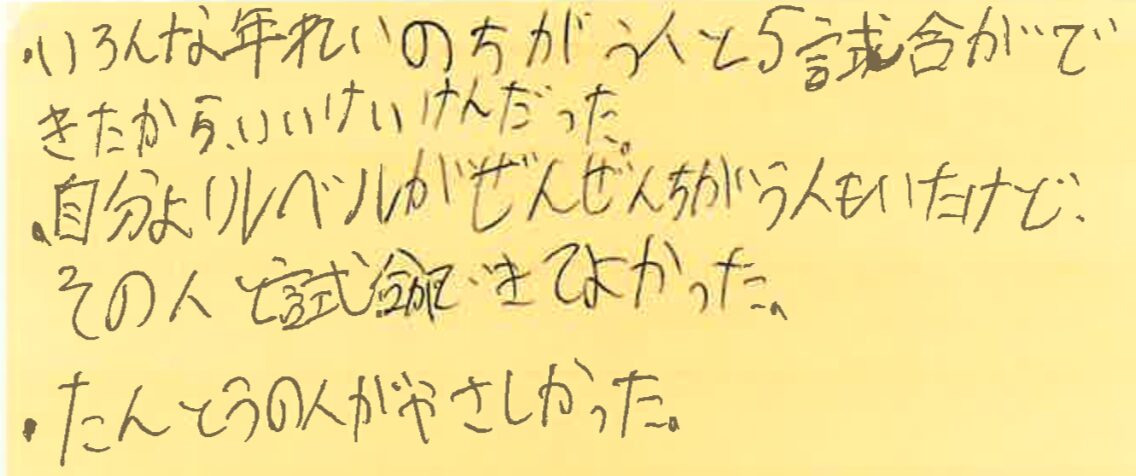 ・いろんな年れいのちがう人と5試合がで
きたから、いいけいけんだった。
・自分よりレベルがぜんぜんちがう人もいたけど、
その人と試合ができてよかった。
・たんとうの人がやさしかった。